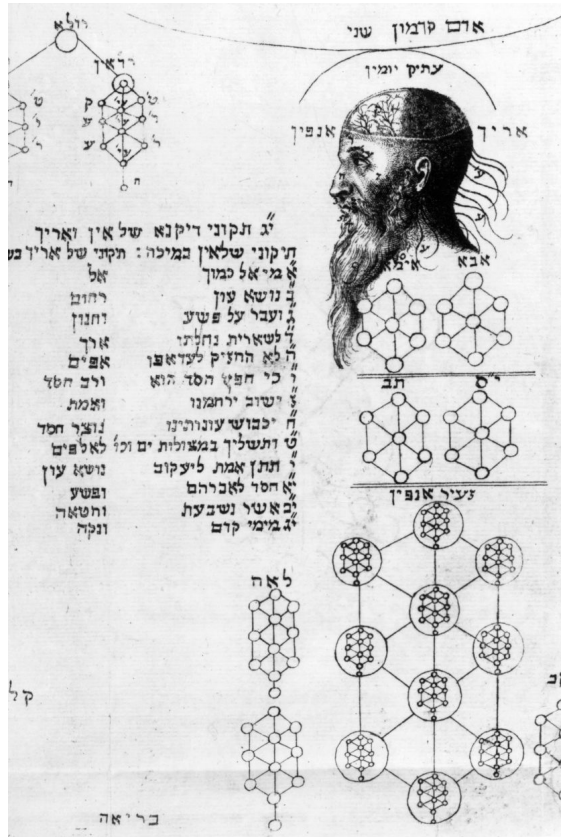 אדם קדמון שני
עתיק יומין
אריך אנפין
אבא אימא
יג תקוני דיקנא של אין ואריך
תיקוני שלאין במיכה: תקוני של אריך
א מי אל כמוך אל
ב נושא עון רחום
ג ועבר על פשע וחנון
ד לשארית נחלתו ארך
ה לא החזיק לעד אפו אפים
ו כי חפץ חסד הוא ורב חסד
ז ישוב ירחמנו ואמת
ח יכבוש עונותינו נוצר חסד
ט ותשליך במצולות ים וכו' לאלפים
י תתן אמת ליעקב נושא עון
יא חסד לאברהם ופשע
יב אשר נשבעת וחטאה
יג מימי קדם ונקה
י"ס תב
זעיר אנפין
לאה
בריאה